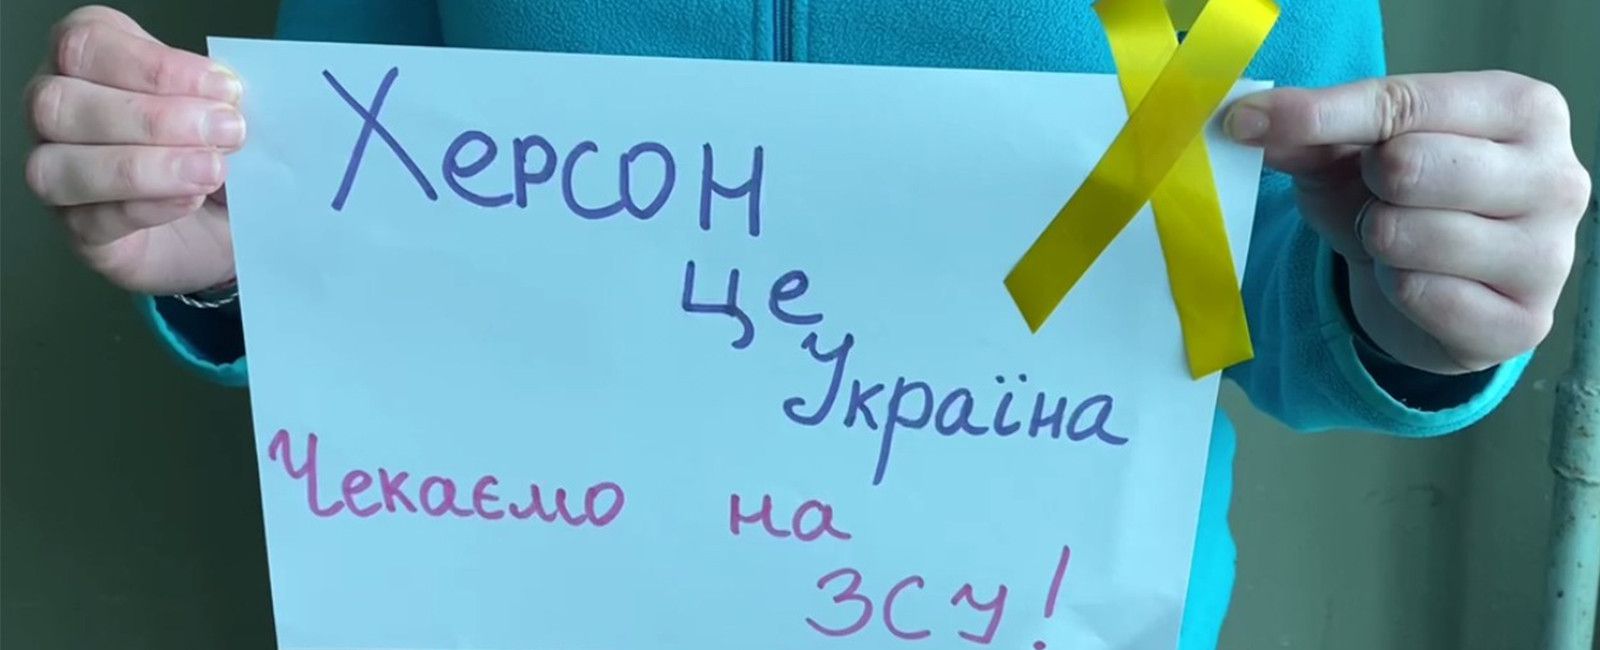 Херсон
це
Україна
Чекаємо на
ЗСУ!